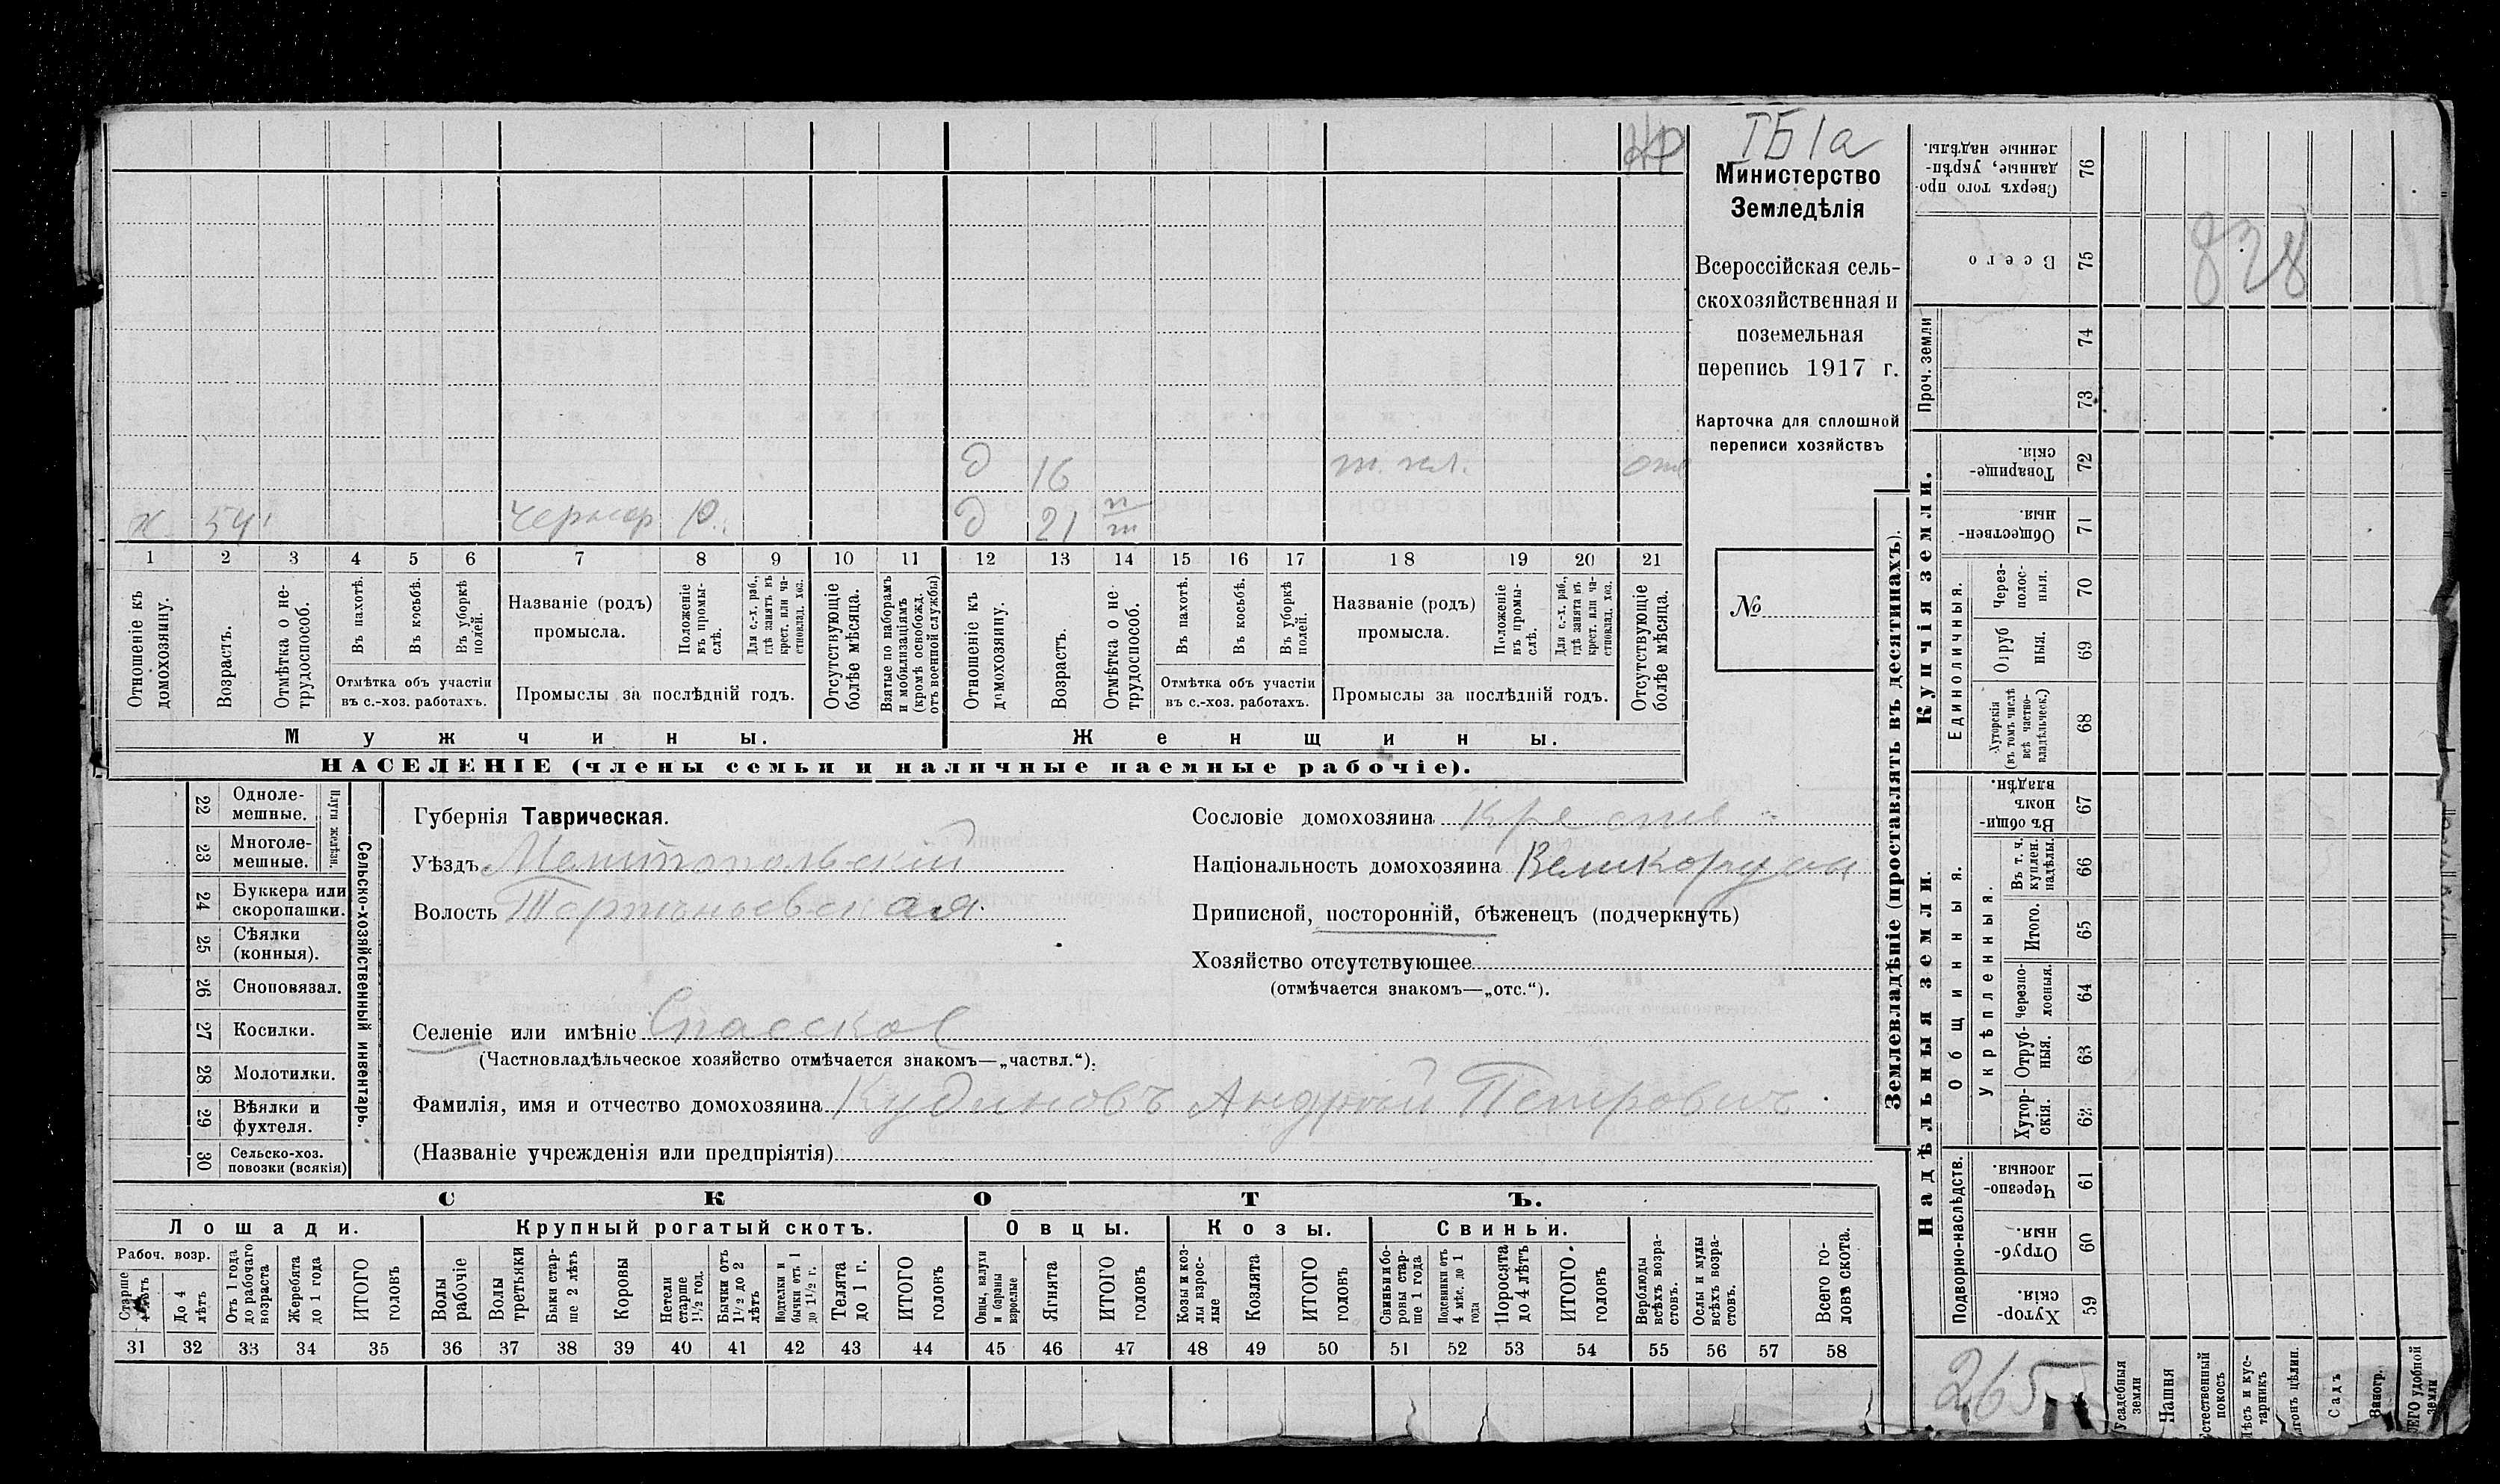 ІБ1а
Министерство
Земледѣлія
Всероссійская сель-
скохозяйственная и
поземельная
перепись 1917 г.
Карточка для сплошной
переписи хозяйствъ
№
д 16 от
х 54 чернор р. д 21
1 2 3 4 5 6 7 8 9 10 11 12 13 14 15 16 17 18 19 20 21
Отношеніе къ домохозяину.
Возрастъ.
Отмѣтка о не-трудоспособ.
Въ пахотѣ.
Въ косьбѣ.
Въ уборкѣ полей.
Отмѣтка объ участіи
въ с.-хоз. работахъ.
Названіе (родъ)
промысла.
Положеніе въ промы-слѣ.
Для с.-х. раб., гдѣ занятъ въ крест. или ча-стновлад. хоз.
Промыслы за послѣдній годъ.
Отсутствующіе болѣе мѣсяца.
Взятые по наборамъ и мобилизаціямъ (кромѣ освобожд. отъ военной службы)
Отношеніе къ домохозяину.
Возрастъ.
Отмѣтка о не-трудоспособ.
Въ пахотѣ.
Въ косьбѣ.
Въ уборкѣ полей.
Отмѣтка объ участіи
въ с.-хоз. работахъ.
Названіе (родъ)
промысла.
Положеніе въ промы-слѣ.
Для с.-х. раб., гдѣ занята въ крест. или ча-стновлад. хоз.
Промыслы за послѣдній годъ.
Отсутствующіе болѣе мѣсяца.
Мужчины.
Женщины.
НАСЕЛЕНІЕ (члены семьи и наличные наемные рабочіе).
22 Одноле-мешные.
23 Многоле-мешные.
Плуги желѣзн.
24 Буккера или скоропашки.
25 Сѣялки (конныя).
26 Сноповязал.
27 Косилки.
28 Молотилки.
29 Вѣялки и фухтеля.
30 Сельско-хоз. повозки (всякія)
Сельско-хозяйственный инвентарь.
Губернія Таврическая.
Уѣздъ Мелитопольскій
Волость
Селеніе или имѣніе Спасское
(Частновладѣльческое хозяйство отмѣчается знакомъ—„частвл.“).
Фамилія, имя и отчество домохозяина Кудиновъ Андрей Петровичъ
(Названіе учрежденія или предпріятія)
Сословіе домохозяина крестьян
Національность домохозяина Великорусы
Приписной, посторонній, бѣженецъ (подчеркнуть)
Хозяйство отсутствующее
(отмѣчается знакомъ—„отс.“).
СКОТЪ.
Лошади. Крупный рогатый скотъ. Овцы. Козы. Свиньи.
Рабоч. возр.
Старше 4 лѣтъ
До 4 лѣтъ
Отъ 1 года до рабочаго возраста
Жеребята до 1 года
ИТОГО головъ
Волы рабочіе
Волы третьяки
Быки стар-ше 2 лѣтъ
Коровы
Нетели старше 1½ год.
Бычки отъ 1½ до 2 лѣтъ
Подтелки и бычки отъ 1 до 1½ г.
Телята до 1 г.
ИТОГО головъ
Овцы, валухи и бараны взрослые
Ягнята
ИТОГО головъ
Козы и коз-лы взрос-лые
Козлята
ИТОГО головъ
Свиньи и бо-ровы стар-ше 1 года
Подсвинки отъ 4 мѣс. до 1 года
Поросята до 4 лѣтъ
ИТОГО головъ
Верблюды всѣхъ возра-стовъ.
Ослы и мулы всѣхъ возра-стовъ.
Всего го-ловъ скота.
31 32 33 34 35 36 37 38 39 40 41 42 43 44 45 46 47 48 49 50 51 52 53 54 55 56 57 58
Землевладѣніе (проставлять въ десятинахъ).
Сверхъ того про-данные, укрѣп-ленные надѣлы. 76
Всего 75
828
Проч. земли 74 73
Купчія земли.
Товарище-скія. 72
Обществен-ныя. 71
Единоличныя.
Через-полос-ныя. 70
Отруб ныя. 69
Хуторскія (въ томъ числѣ всѣ частно-владѣльческ.) 68
Надѣльныя земли.
Общинныя.
Въ общи-номъ владѣн. 67
Укрѣпленныя.
Въ т. ч. куплен. надѣлы. 66
Итого. 65
Черезпо-лосныя. 64
Отруб-ныя. 63
Хутор-скія. 62
Подворно-наслѣдств.
Черезпо-лосныя. 61
Отруб-ныя. 60
Хутор-скія. 59
265
Усадебныя земли
Пашня
Естественный покосъ
Лѣсъ и кус-тарникъ
Садъ
Виногр.